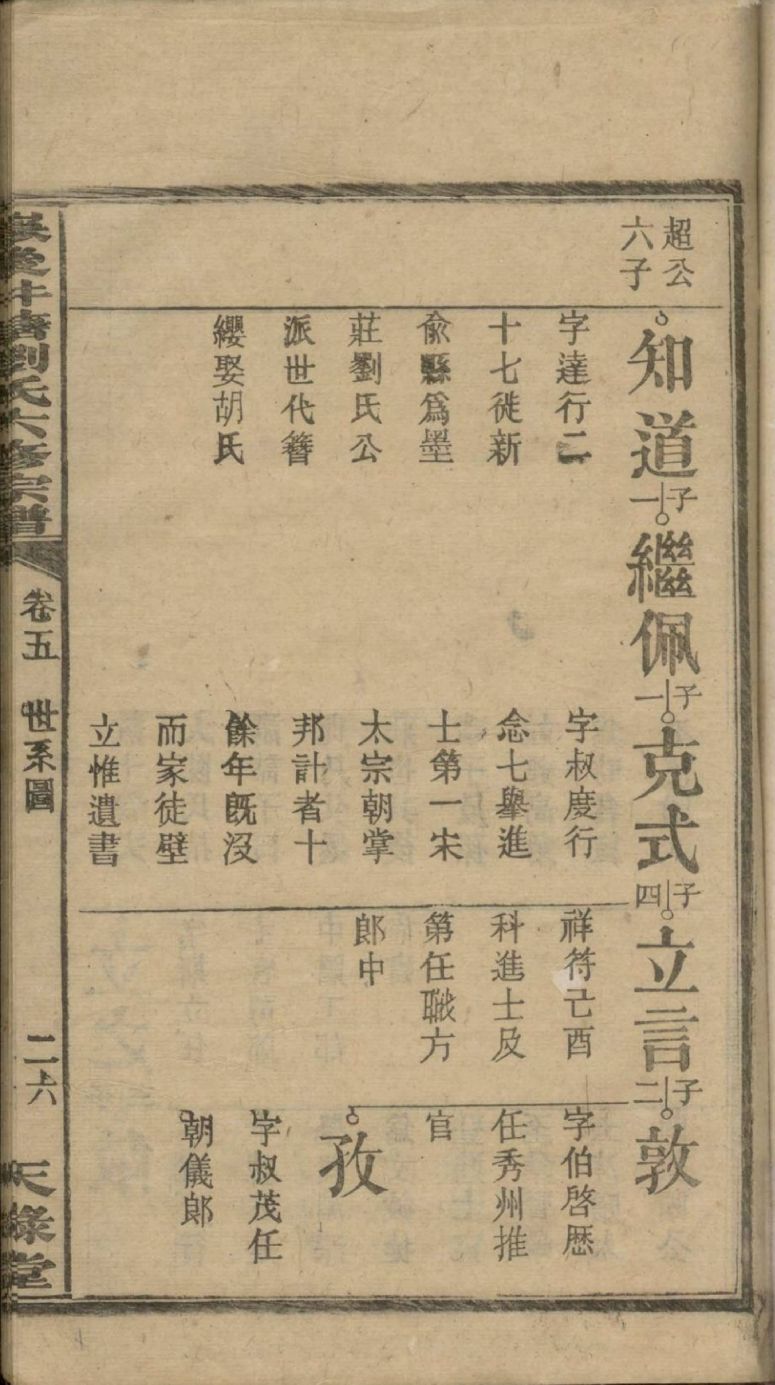 超公
六子
知道 子一 繼佩 子一 克式 子四 立言 子二 敦
字達行二
十七徙新
俞縣爲墨
莊劉氏公
派世代簪
纓娶胡氏
字叔度行
念七舉進
士第一宋
太宗朝掌
邦計者十
餘年旣沒
而家徒壁
立惟遺書
祥符己酉
科進士及
第任職方
郎中
字伯啓歷
任秀州推
官
孜
字叔茂任
朝儀郎
劉氏六修宗譜
卷五 世系圖
二六
天祿堂